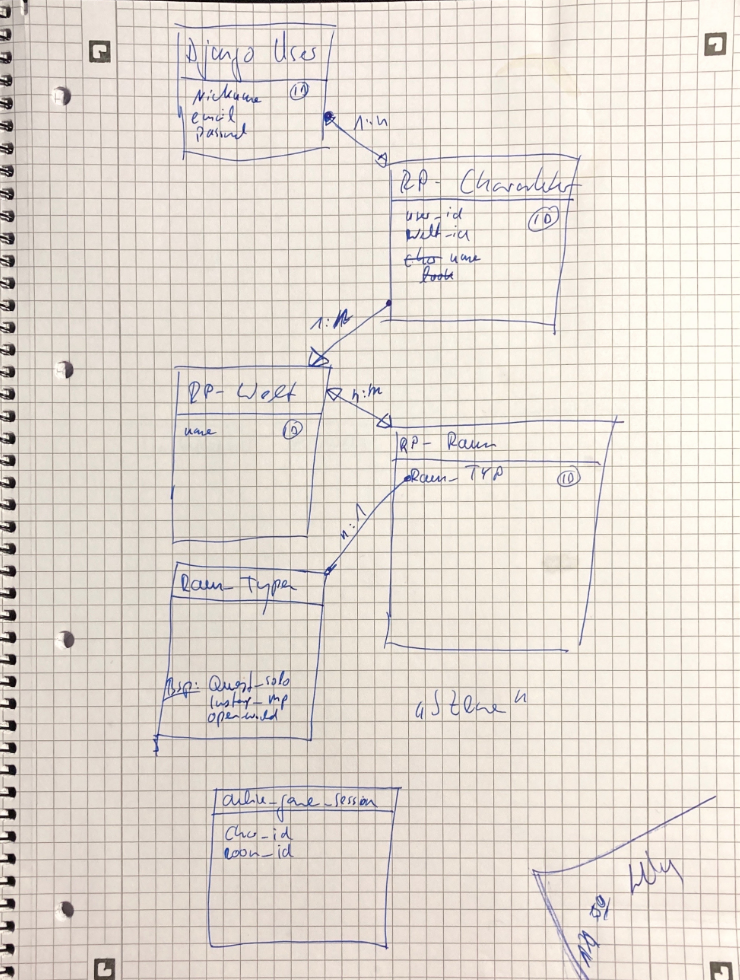 Django User
Nickname ID
email
passwd
1:n
RP-Charakter
user_id ID
welt_id
name
RP-Welt
name ID
n:m
RP-Raum
Raum_TYP ID
n:1
Raum_Typen
Bsp: Quest_solo
open-world
„Szene"
active_game_session
char_id
room_id